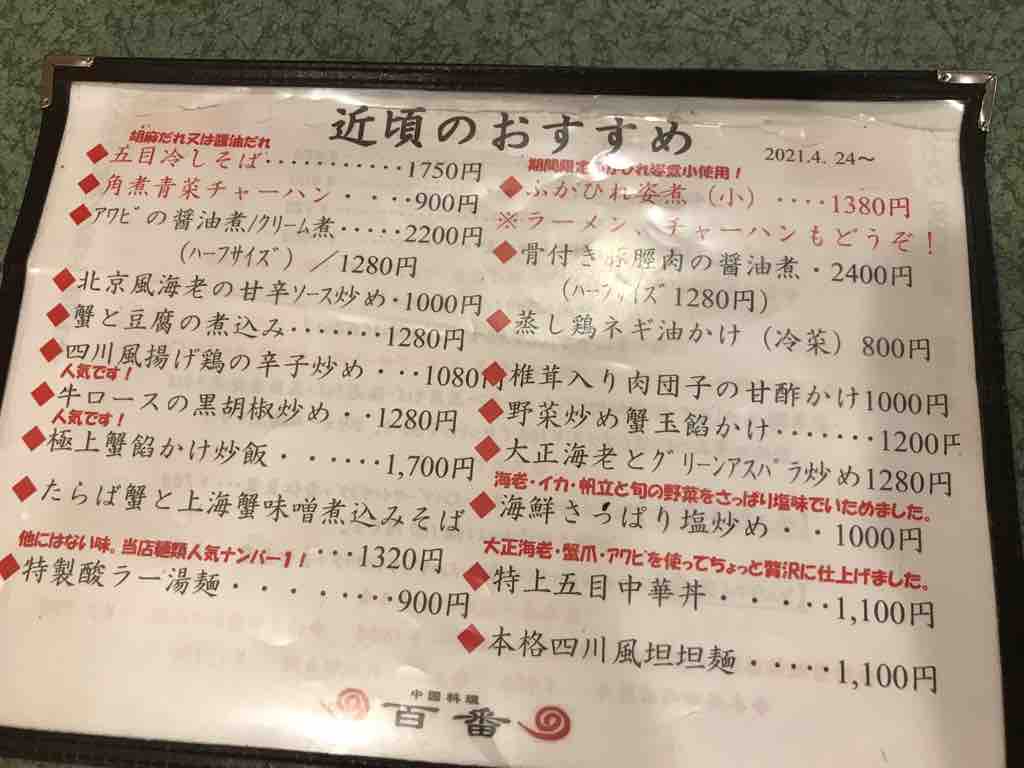 近頃のおすすめ
2021.4. 24～
胡麻だれ又は醤油だれ
◆五目冷しそば・・・・・・・・・・・1750円
◆角煮青菜チャーハン・・・・900円
◆ｱﾜﾋﾞの醤油煮/ｸﾘｰﾑ煮・・・・・2200円
(ﾊｰﾌｻｲｽﾞ）／1280円
◆北京風海老の甘辛ｿｰｽ炒め・1000円
◆蟹と豆腐の煮込み・・・・・・・1280円
◆四川風揚げ鶏の辛子炒め・・・1080円
人気です！
◆牛ロースの黒胡椒炒め・・1280円
人気です！
◆極上蟹餡かけ炒飯・・・・・・1,700円
◆たらば蟹と上海蟹味噌煮込みそば
・・・1320円
他にはない味。当店麺類人気ナンバー1！
◆特製酸ラー湯麺・・・・・・・・900円
期間限定ふかひれ姿煮小使用！
◆ふかひれ姿煮（小）・・・・1380円
※ラーメン、チャーハンもどうぞ！
◆骨付き豚脛肉の醤油煮・2400円
（ﾊｰﾌｻｲｽﾞ1280円）
◆蒸し鶏ネギ油かけ（冷菜）800円
◆椎茸入り肉団子の甘酢かけ1000円
◆野菜炒め蟹玉餡かけ・・・・・・・1200円
◆大正海老とｸﾞﾘｰﾝｱｽﾊﾟﾗ炒め1280円
海老・イカ・帆立と旬の野菜をさっぱり塩味でいためました。
◆海鮮さっぱり塩炒め・・1000円
大正海老・蟹爪・ｱﾜﾋﾞを使ってちょっと贅沢に仕上げました。
◆特上五目中華丼・・・・・1,100円
◆本格四川風坦坦麺・・・・・1,100円
中國料理
百番